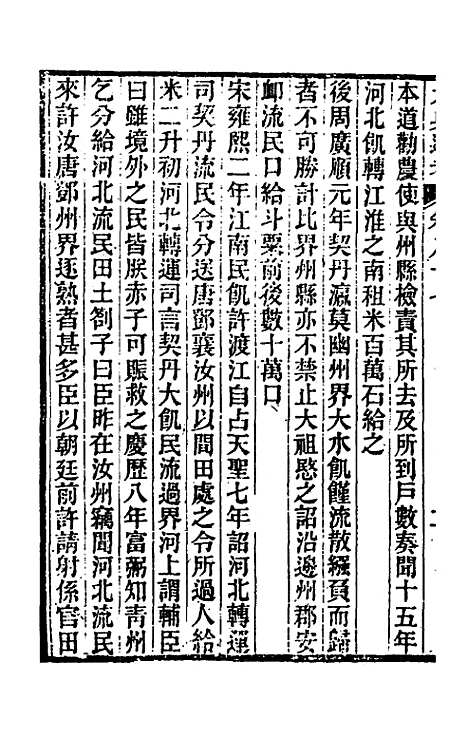 本道勸農使與州縣檢責其所去及所到戸數奏聞十五年
河北飢轉江淮之南租米百萬石給之
後周廣順元年契丹瀛莫幽州界大水飢饉流散繈負而歸
者不可勝計比界州縣亦不禁止大祖愍之詔沿邊州郡安
卹流民口給斗粟前後數十萬口
宋雍熙二年江南民飢許渡江自占天聖七年詔河北轉運
司契丹流民令分送唐鄧襄汝州以閒田處之令所過人給
米二升初河北轉運司言契丹大飢民流過界河上謂輔臣
曰雖境外之民皆朕赤子可賑救之慶歷八年富弼知靑州
乞分給河北流民田土劄子曰臣昨在汝州竊聞河北流民
來許汝唐鄧州界逐熟者甚多臣以朝廷前許請射係官田